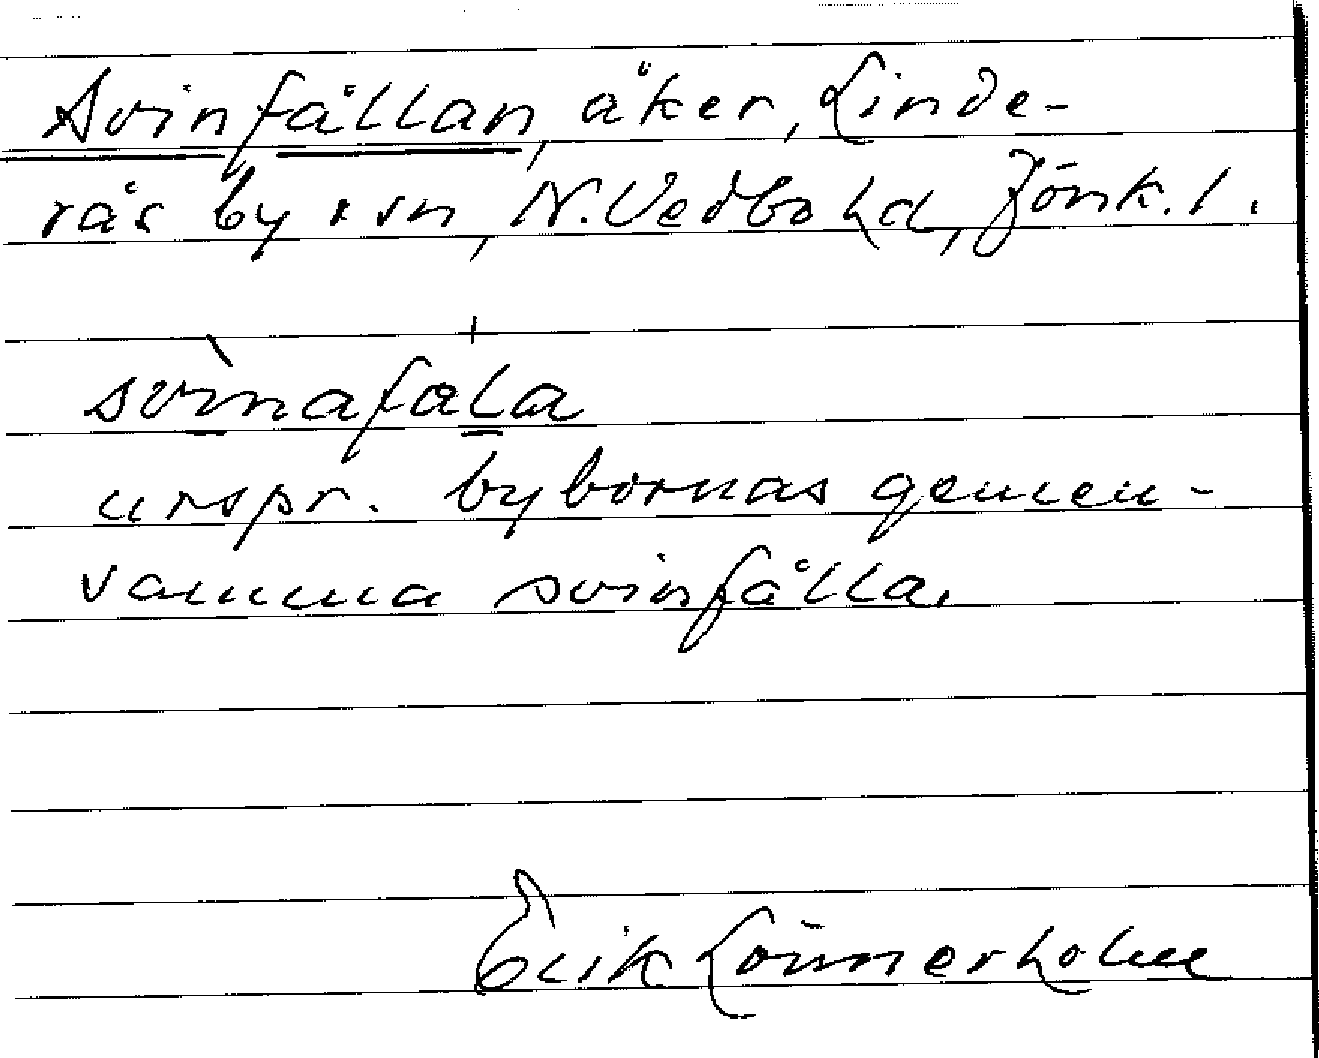 Svinfållan, åker, Linde-
rås by o sn, N. Vedbo hd, Jönk. l.
svìnafåla
urspr. bybornas gemen-
samma svinfålla.
Erik Lönnerholm